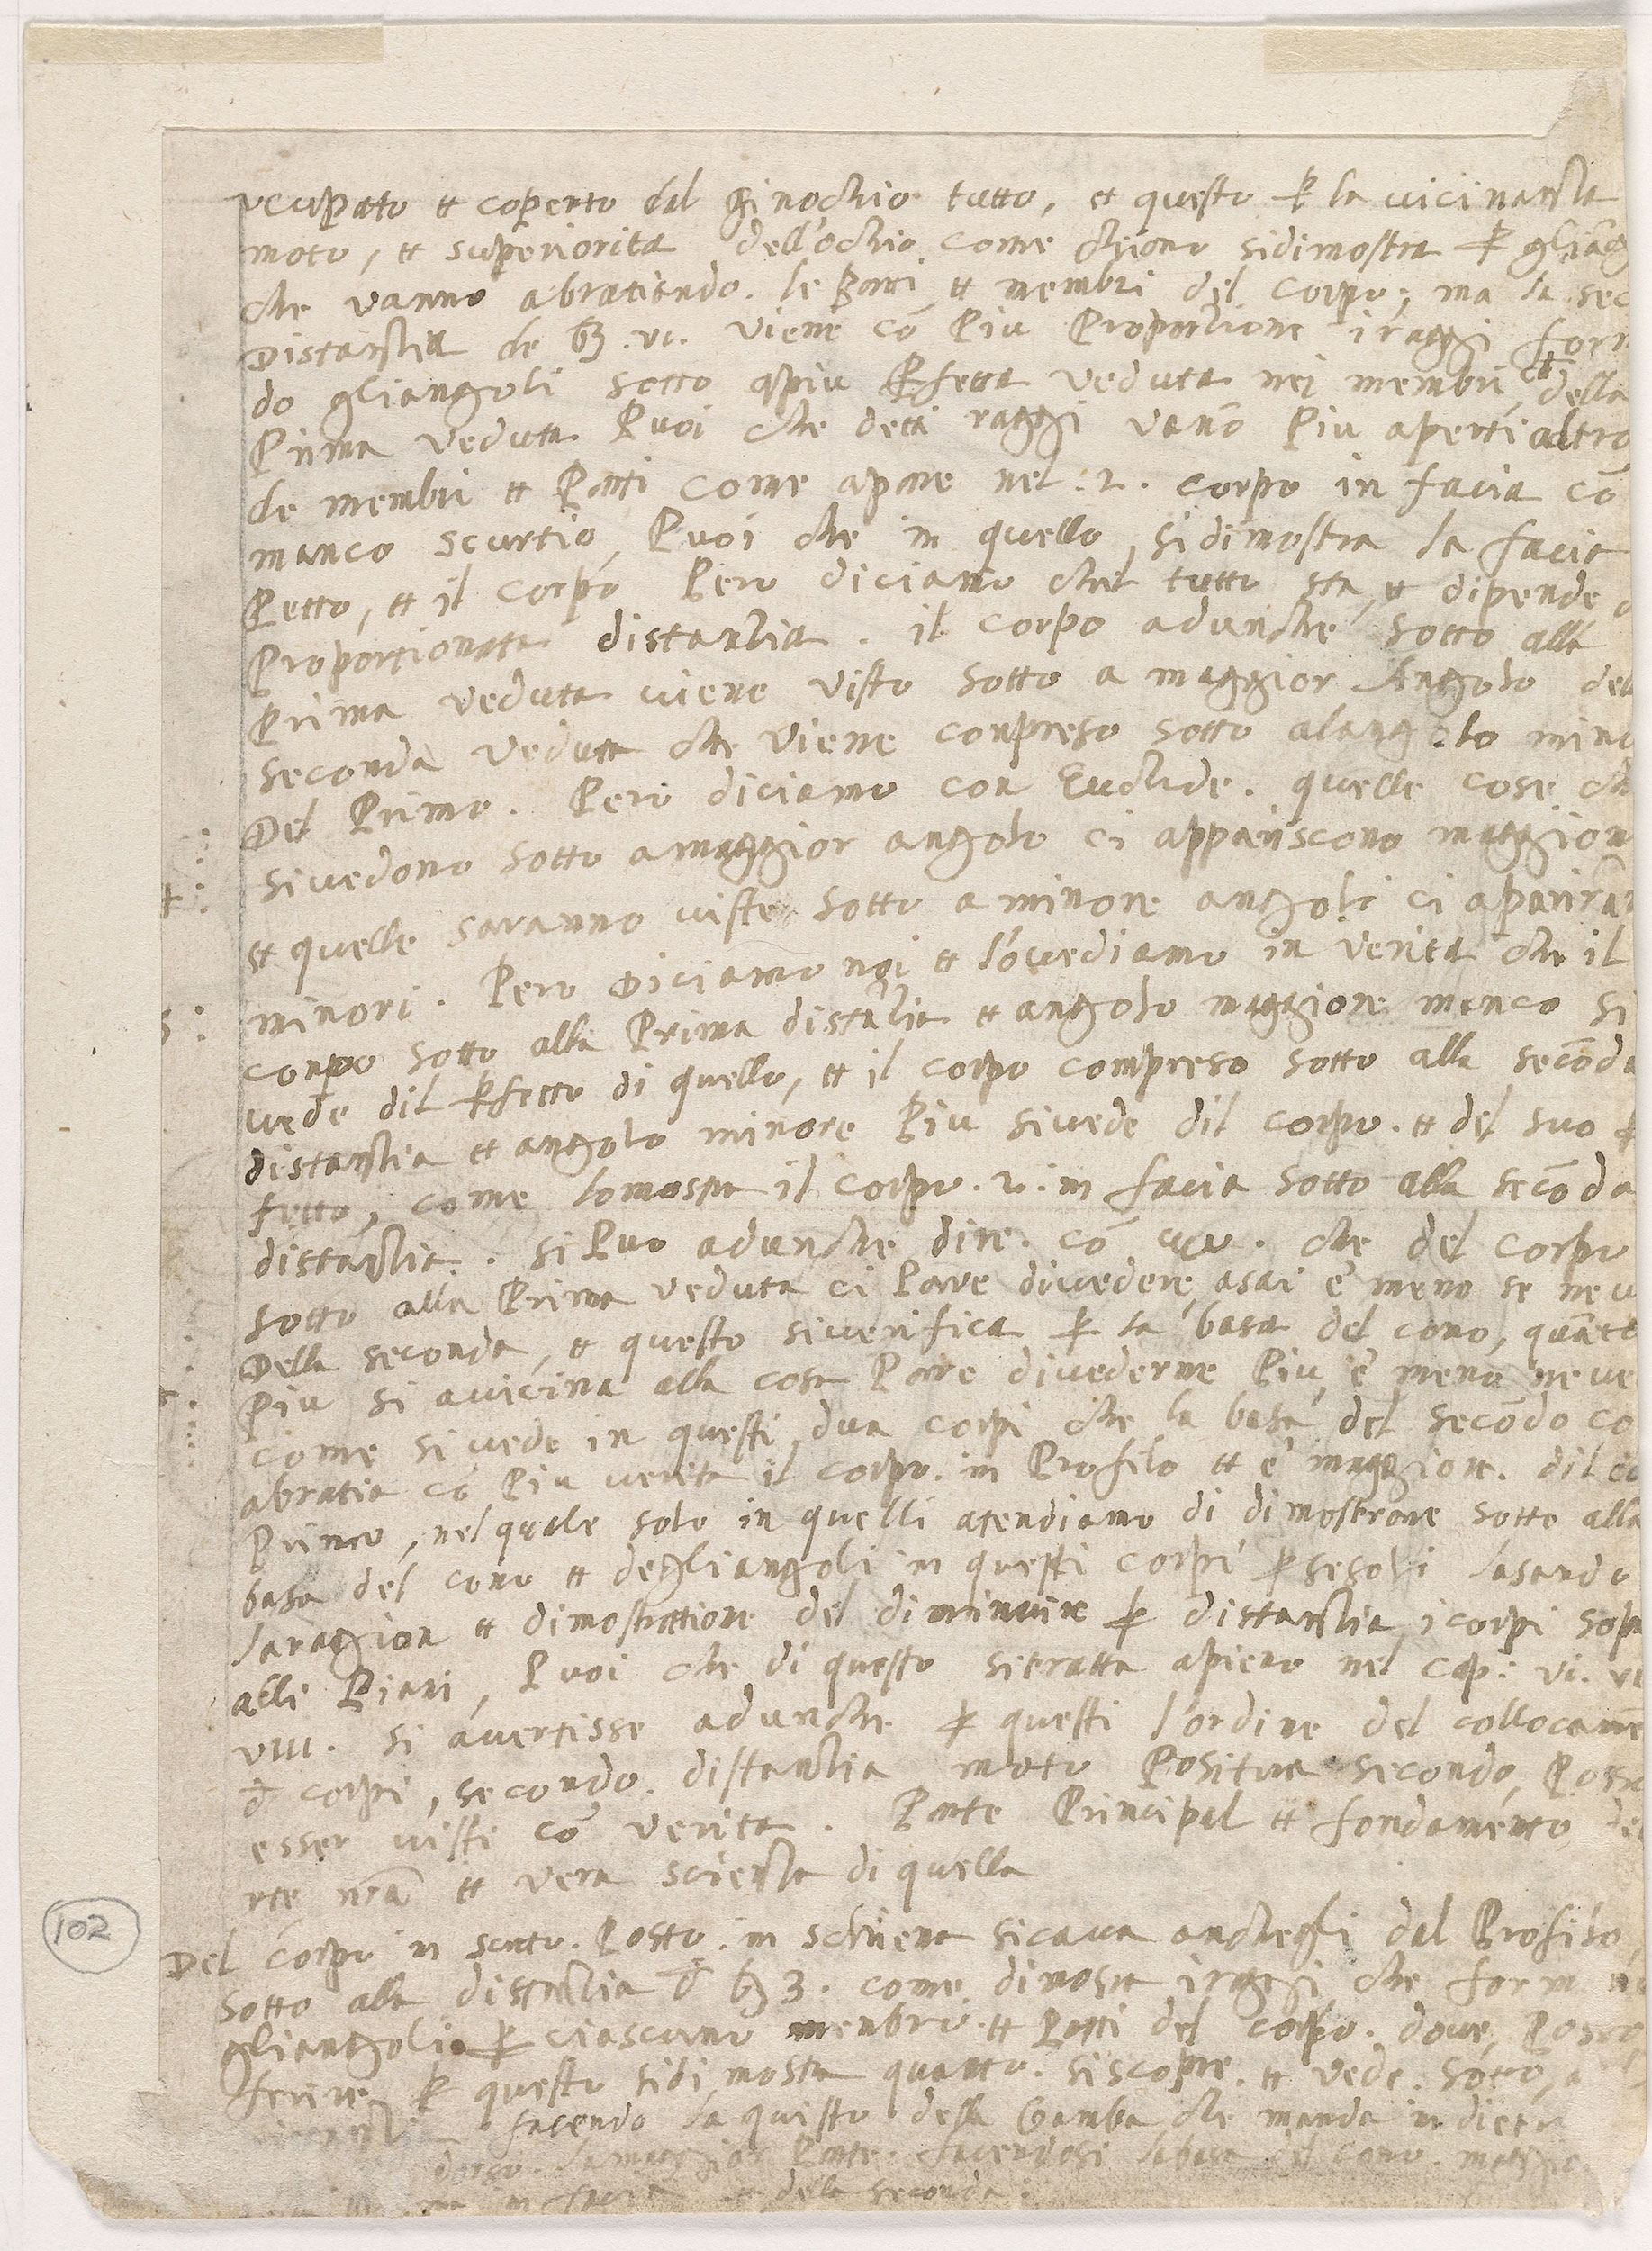 ucupato et coperto dal ginochio tutto, et questo ꝑ la vicinantia
moto, et superiorita dell'ochio come chiaro sidimostra ꝑ gliãg
che vanno abratiando. le parti et membri del corpo; ma la sec
Distantia de .vi. viene cõ Piu Proportione i raggi form
do gliangoli sotto apiu ꝑfetta veduta nei membri, et della
Prima veduta Puoi che detti raggi vanõ Piu aperti altro
de membri et Parti come apare nel .2. corpo in facia cõ
manco scurtio, Puoi che in quello, sidimostra la facia
Petto, et il corpo Pero diciamo chel tutto sta, et dipende
Proportionata distantia. il corpo adunche sotto alla
Prima veduta viene visto sotto a maggior Angolo del
seconda veduta che viene conpreso sotto alangolo mino
Del Primo. Pero diciamo con Euclide. quelle cose ch
sivedono sotto amaggior angolo ci appariscono maggiori
et quelle saranno viste sotto a minore angoli ci apparirã
minori. Pero Diciamo noi et lovediamo in verita che il
corpo sotto alla Prima distãtia et angolo maggiore manco si
vede dil ꝑfetto di quello, et il corpo compreso sotto alla secõda
distantia et angolo minore Piu sivede dil corpo. et del suo ꝑ
fetto, come lomostra il corpo .2. in facia sotto alla secõda
distãtia. si Puo adunche dire. cõ che del corpo
sotto alla Prima veduta ci Pare divedere asai e meno se ne v
Della seconda, et questo siverifica ꝑ la basa del cono, quãto
Piu si avicina alla cosa Pare divederne Piu, e meno ne ve
come si vede in questi dua corpi che la basa del secõdo co
abratia cõ Piu verita il corpo. in Profilo et e maggiore. dil co
Primo, nel quale solo in quelli atendiamo di dimostrare sotto alla
basa del cono et degliangoli in questi corpi ꝑ sesoli lasando
laragion et dimostratione del diminuire ꝑ distantia, i corpi sopra
alli Piani, Puoi che di questo setratta apieno nel cap: vi. vi
viii. si avertisse adunche ꝑ questi l'ordine del collocame
đ corpi, secondo distantia moto Positura secondo Posso
esser visti cõ verita. Parte Principal et fondamento de
rte nr̃a et vera scientia di quella
Del corpo in scurto. Posto. in schiena sicava anchegli dal Profilo,
sotto alla distantia đ 3. come dimostra iraggi che form
gliangoli ꝑ ciascuno menbro. et Parti del corpo. dove, Posso
ferire ꝑ questo sidimostra quanto. siscopre. et vede. sotto, a
facendo laquisto della Gamba che manda in dietro
dorso. lamaggior Parte. facendosi labasa del cono. maggio
ma in facia della seconda:
102